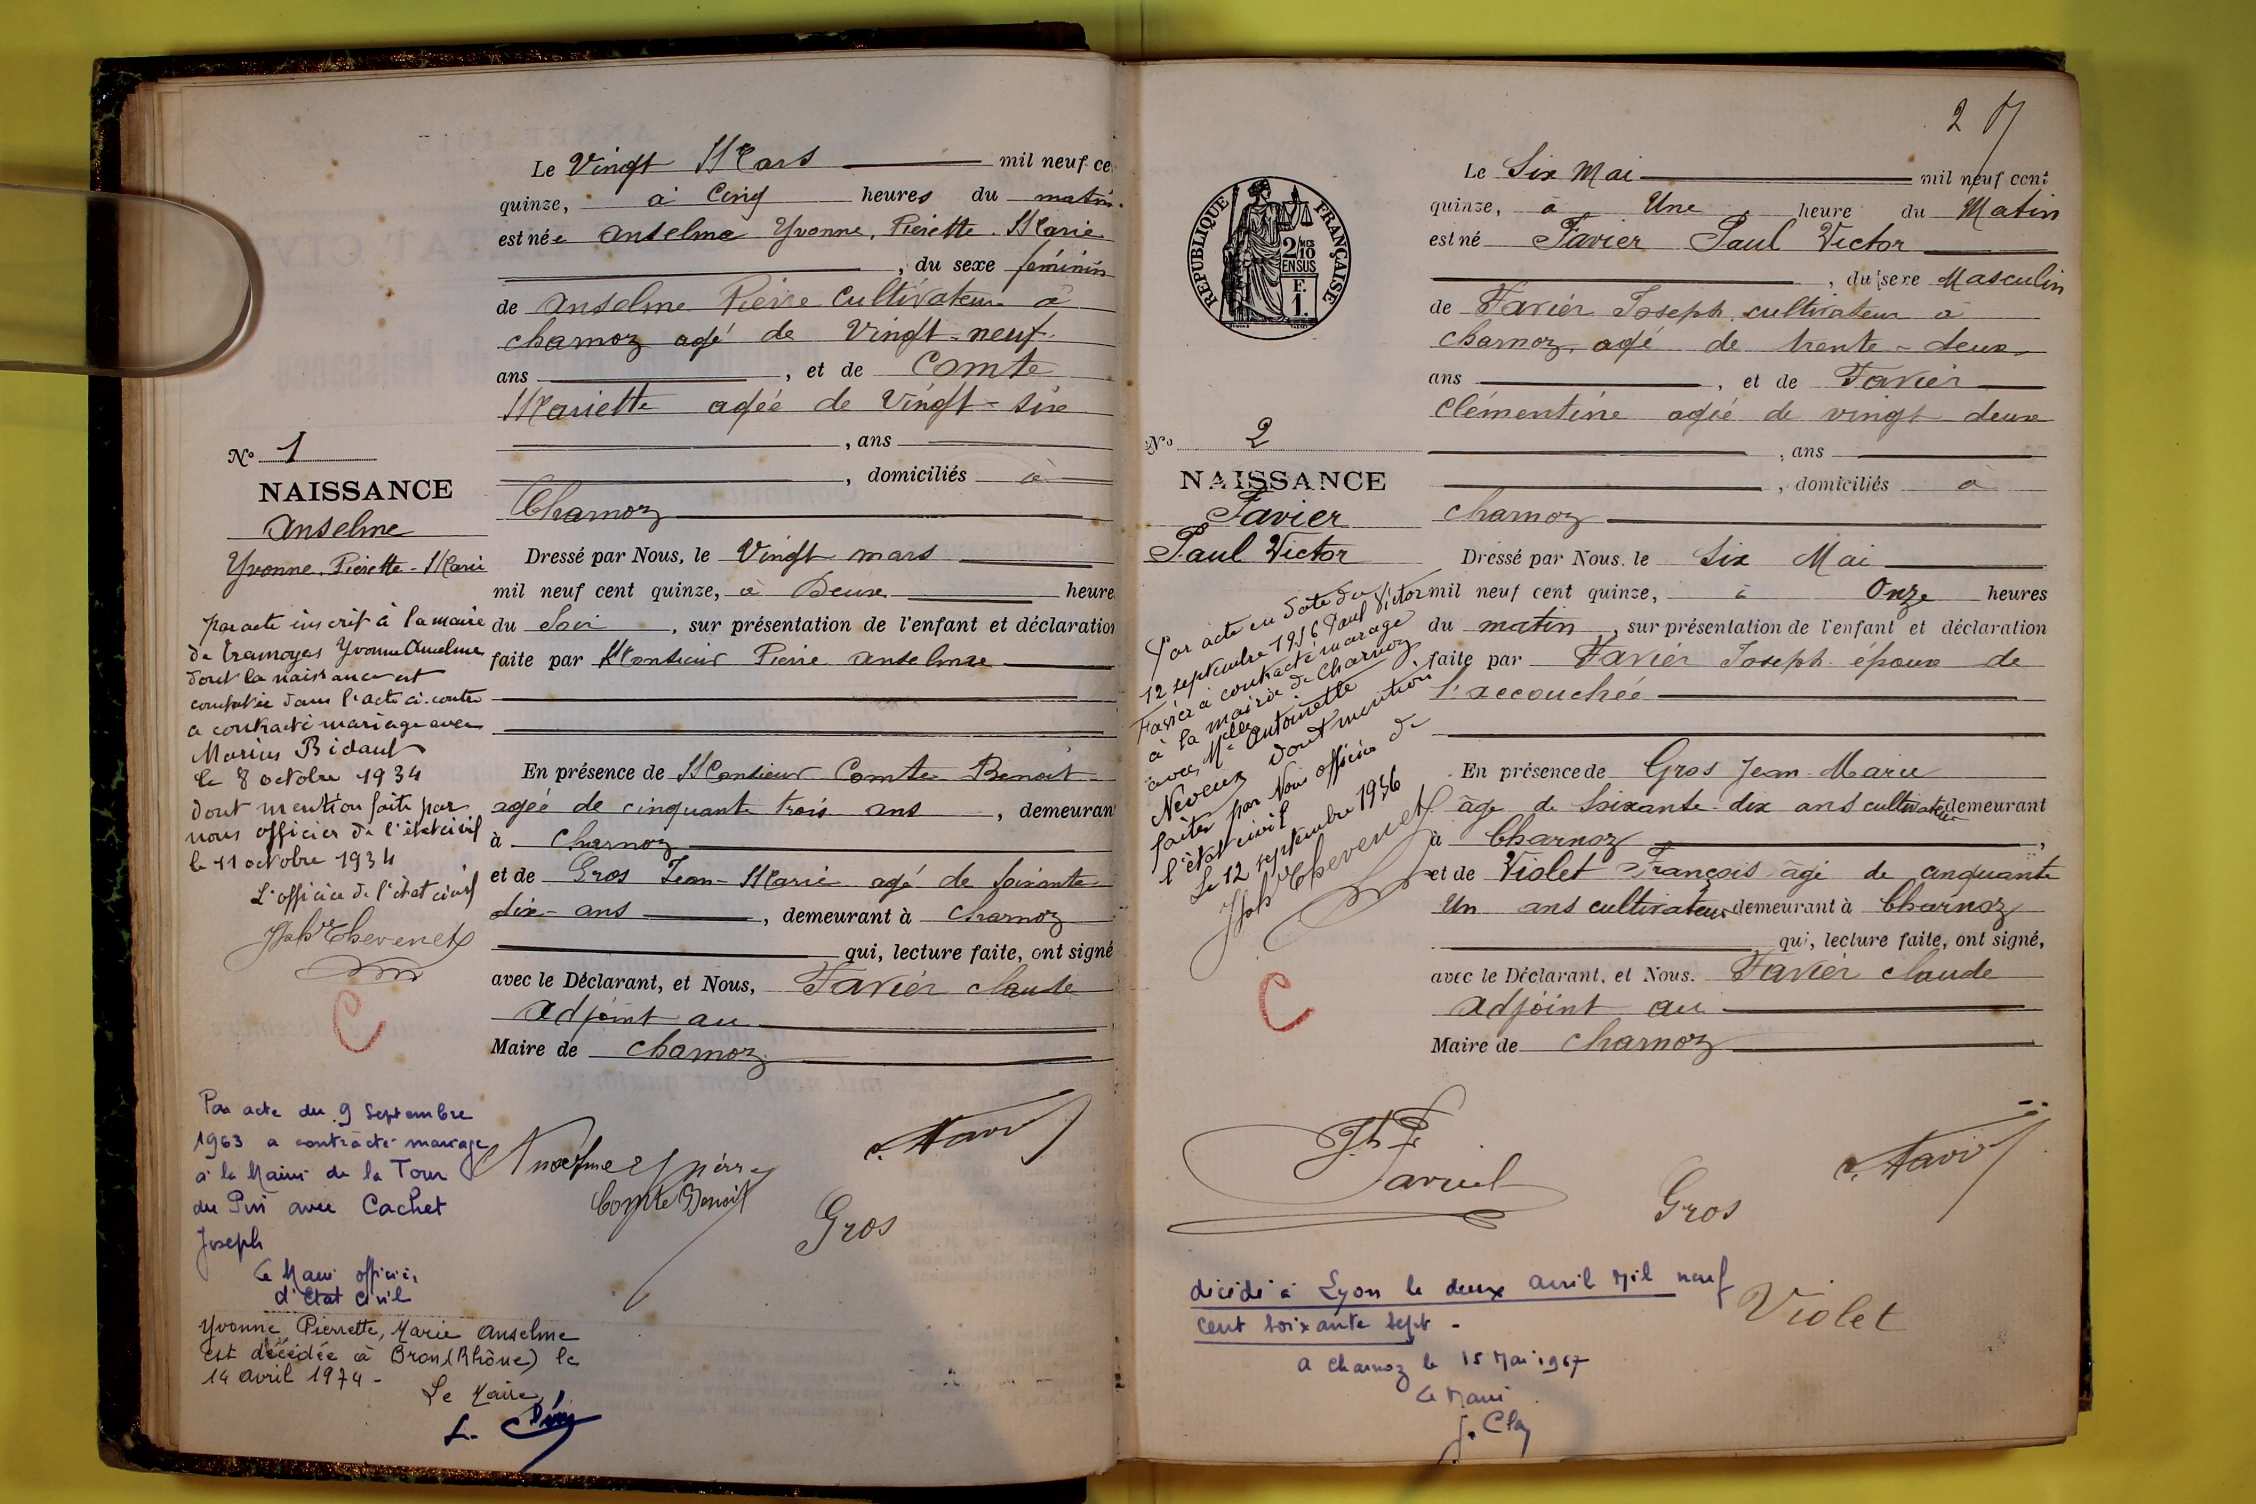 Le Vingt Mars mil neuf ce
quinze, à Cinq heures du matin.
est née Anselme Yvonne, Pierette. Marie
, du sexe féminin
de Anselme Pierre Cultivateur à
charnoz agé de Vingt-neuf
ans , et de Comte
Mariette agéé de Vingt-six
, ans
, domiciliés à
Charnoz
Dressé par Nous, le Vingt mars
mil neuf cent quinze, à Deux heure
du Soir , sur présentation de l'enfant et déclaration
faite par Monsieur Pierre Anselme
En présence de Monsieur Comte Benoit
agéé de cinquante trois ans , demeuran
à charnoz
et de Gros Jean-Marie agé de soixante
dix-ans , demeurant à charnoz
qui, lecture faite, ont signé
avec le Déclarant, et Nous, Favier claude
Adjoint au
Maire de charnoz
No 1
NAISSANCE
Anselme
Yvonne. Pierette-Marie
par acte inscrit à la mairie
de Tramoyes Yvonne Anselme
dont la naissance est
constatée dans l'acte ci-contre
a contracté mariage avec
Marius Bidaut
le 8 octobre 1934
dont mention faite par
nous officier de l'état civil
le 11 octobre 1934
L'officier de l'état civil
Jph Thevenet
C
Par acte du 9 Septembre
1963 a contracté mariage
à la Mairie de la Tour
du Pin avec Cachet
Joseph
Le Maire officier
d'Etat Civil
Yvonne Pierrette, Marie Anselme
est décédée à Bron (Rhône) le
14 avril 1974 -
Le Maire
L.
Anselme Pierre
Comte Benoit
Gros
c. Favier
27
RÉPUBLIQUE FRANÇAISE
2/10
EN SUS
F.
1.
Le Six Mai mil neuf cent
quinze, à Une heure du Matin
est né Favier Paul Victor
, du sexe Masculin
de Favier Joseph cultivateur à
Charnoz, agé de trente-deux
ans , et de Favier
Clémentine agéé de vingt deux
, ans
, domiciliés à
charnoz
Dressé par Nous, le Six Mai
mil neuf cent quinze, à Onze heures
du matin , sur présentation de l'enfant et déclaration
faite par Favier Joseph époux de
l'accouchée
En présence de Gros Jean-Marie
âgé de soixante-dix ans cultivateur demeurant
à Charnoz ,
et de Violet François âgé de cinquante
Un ans cultivateur demeurant à Charnoz
qui, lecture faite, ont signé,
avec le Déclarant, et Nous. Favier claude
Adjoint au
Maire de charnoz
No 2
NAISSANCE
Favier
Paul Victor
Par acte en date du
12 septembre 1936 Paul Victor
Favier a contracté mariage
à la mairie de Charnoz
avec Melle Antoinette
Neveux dont mention
faite par Nous officier de
l'état civil
Le 12 septembre 1936
Jph Thevenet
C
Jh F
Favier
Gros
c. Favier
Violet
décédé à Lyon le deux avril mil neuf
cent soixante sept -
à charnoz le 15 Mai 1967
Le Maire